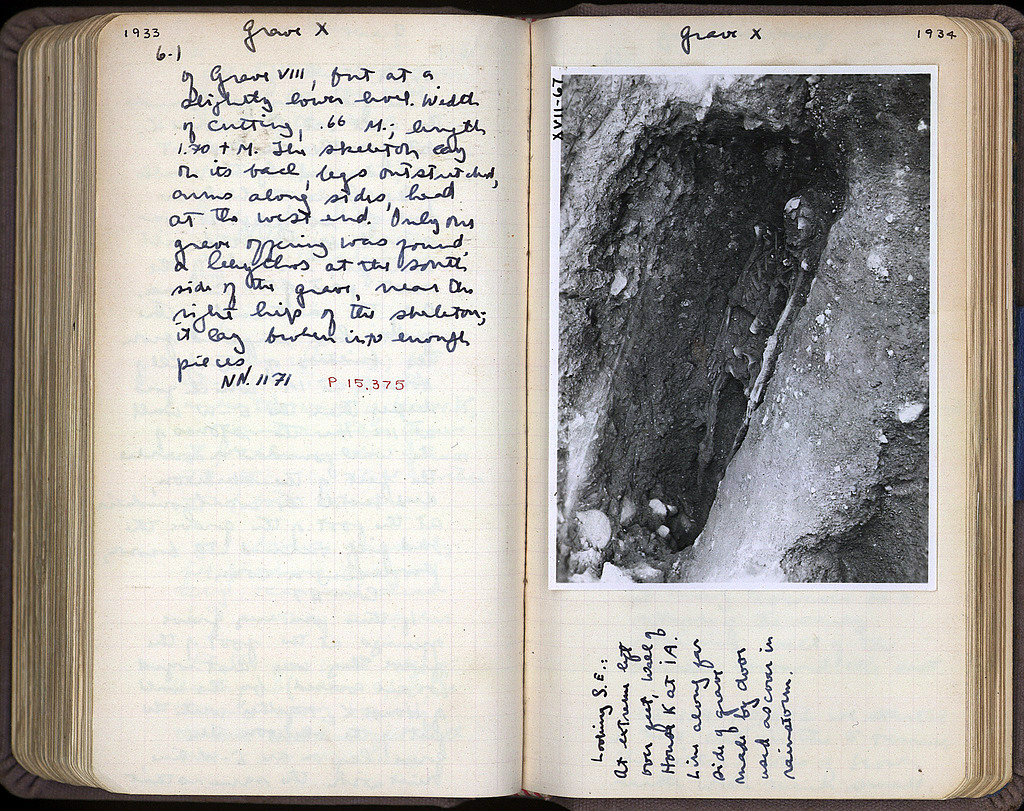 1933
Grave X
6-1
of Grave VIII, but at a
slightly lower level. Width
of cutting, .66 M.; length
1.70 + M. The skeleton lay
on its back, legs outstretched,
arms along sides, head
at the west end. Only one
grave offering was found,
a lekythos at the south
side of the grave, near the
right hip of the skeleton;
it lay broken into enough
pieces
NN. 1171 P 15,375
Grave X
1934
XVII-67
Looking S.E.:
At extreme left
over feet, wall of
House K at 1A.
Line along far
side of grave
made by door
used as cover in
rainstorm.